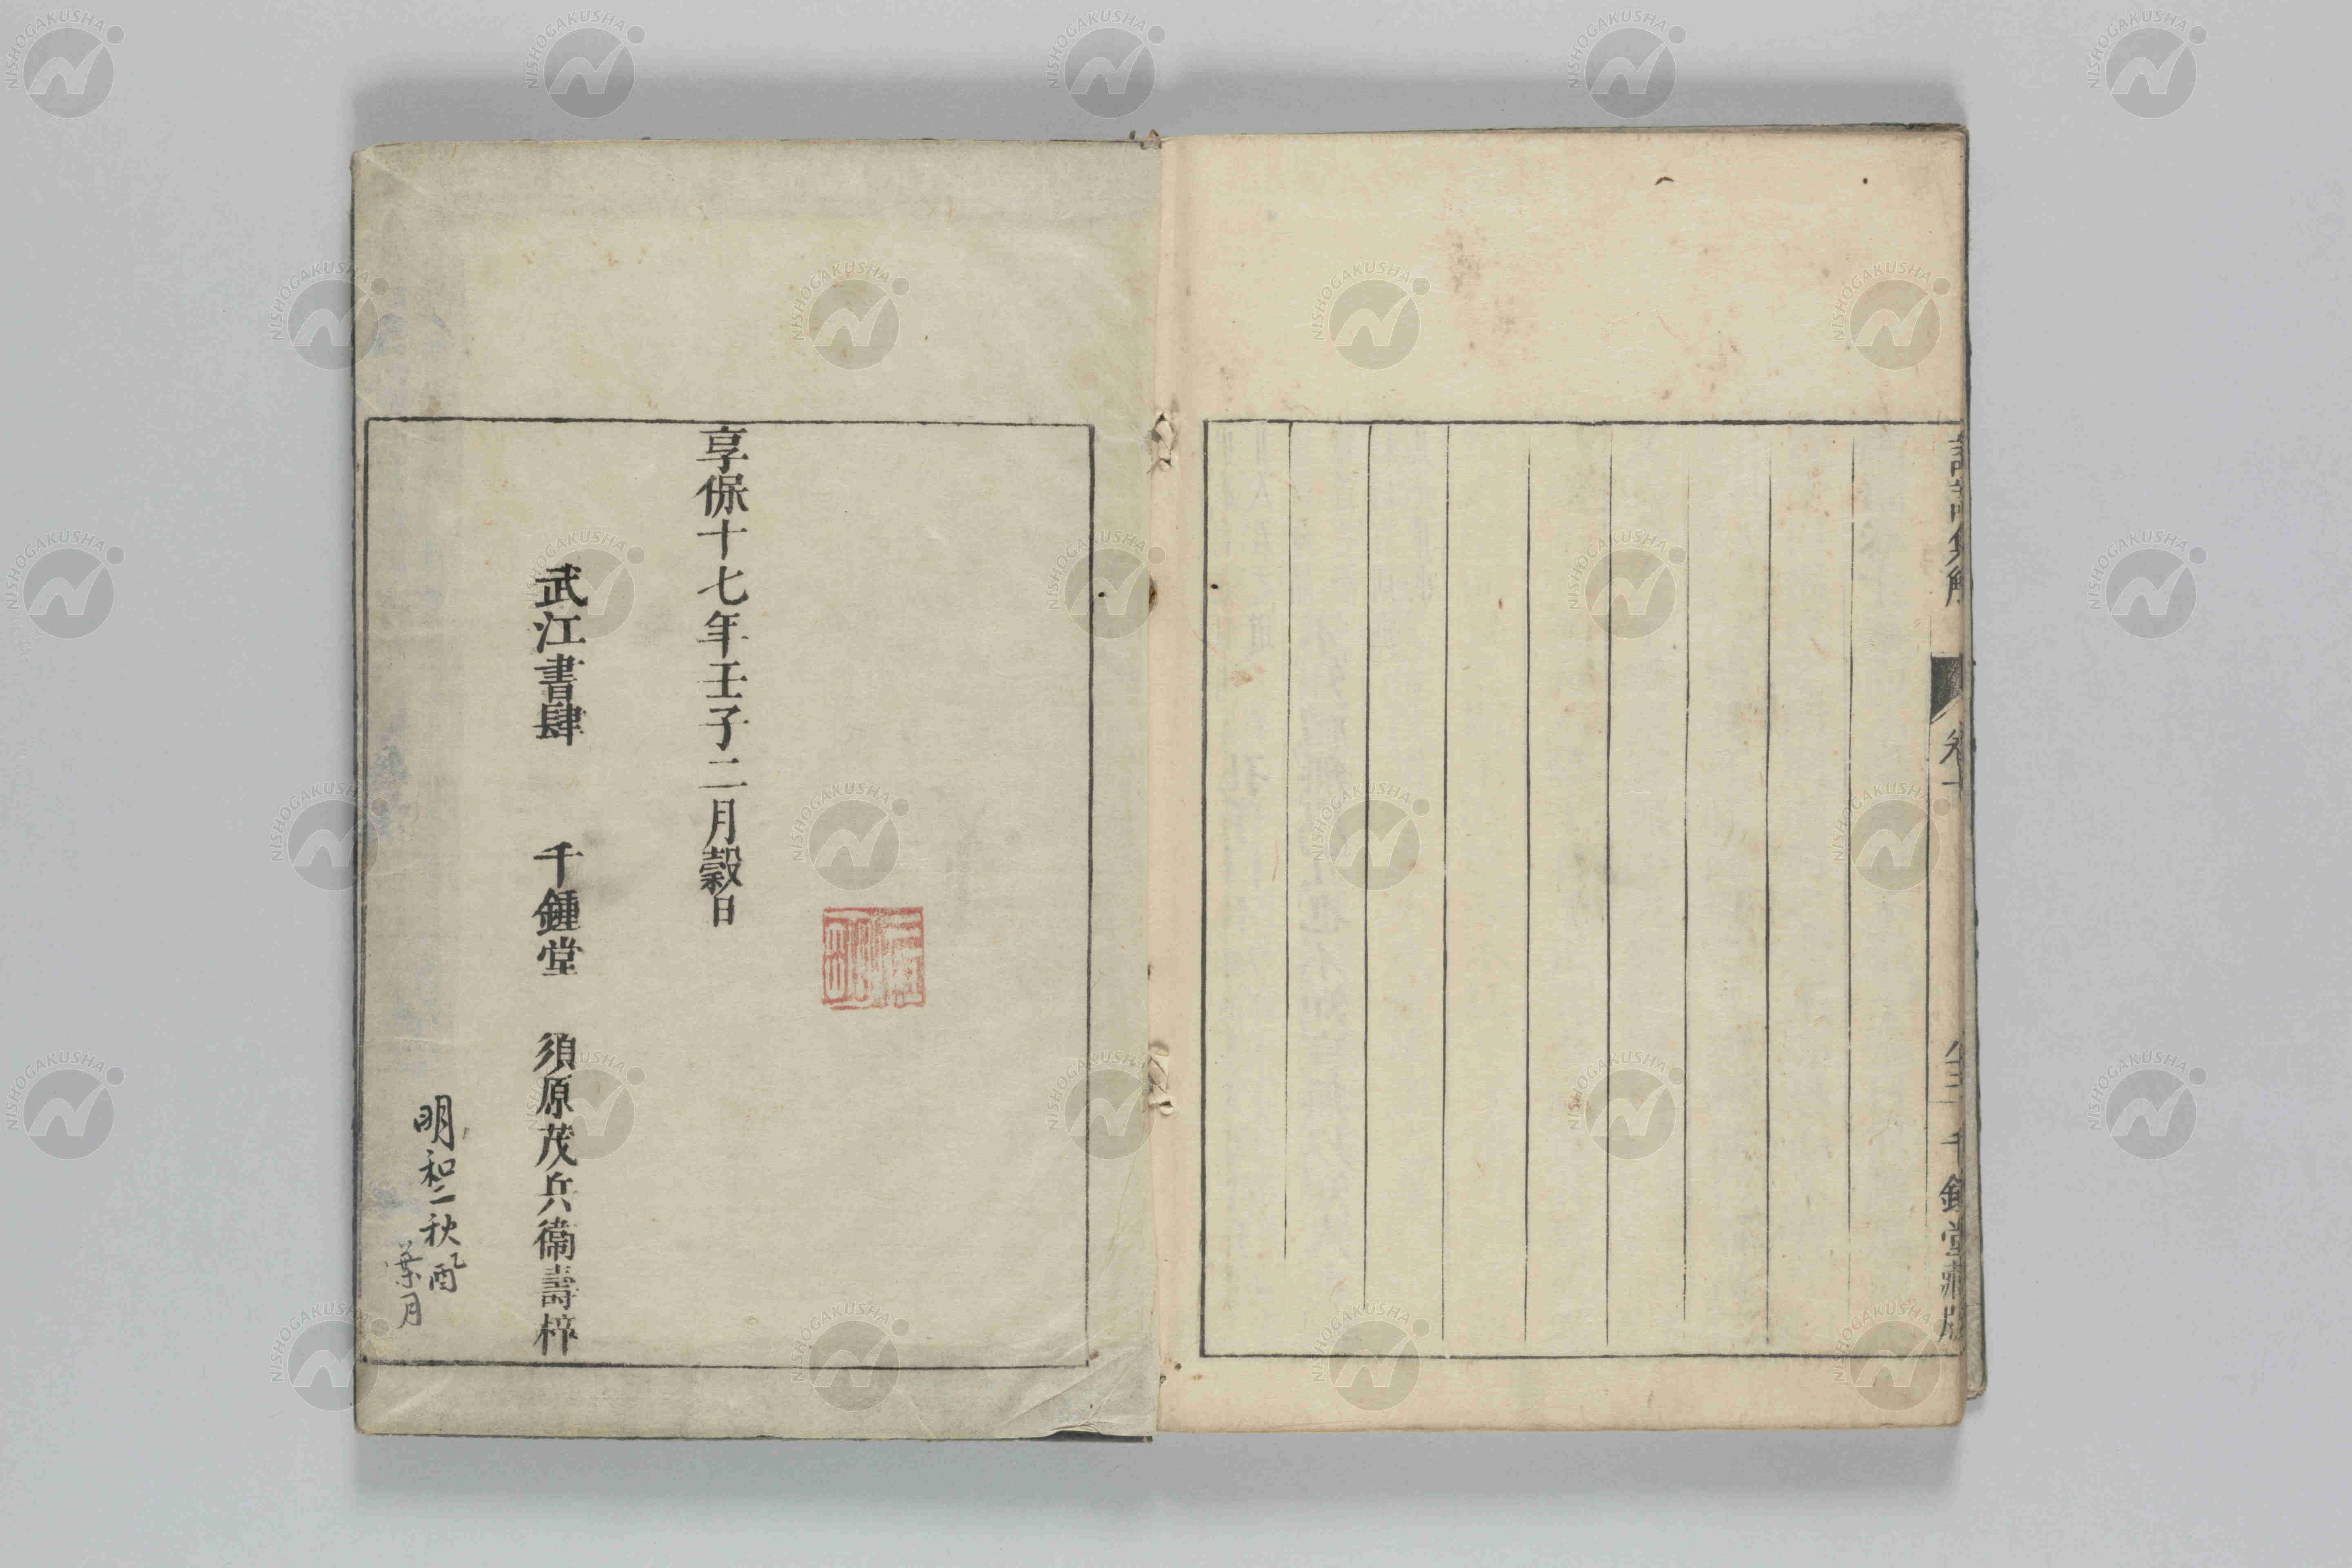 論語集解 卷十 千鍾堂藏版
享保十七年壬子二月穀日
武江書肆 千鍾堂 須原茂兵衞壽梓
明和二秋乙酉
葉月
NISHOGAKUSHA